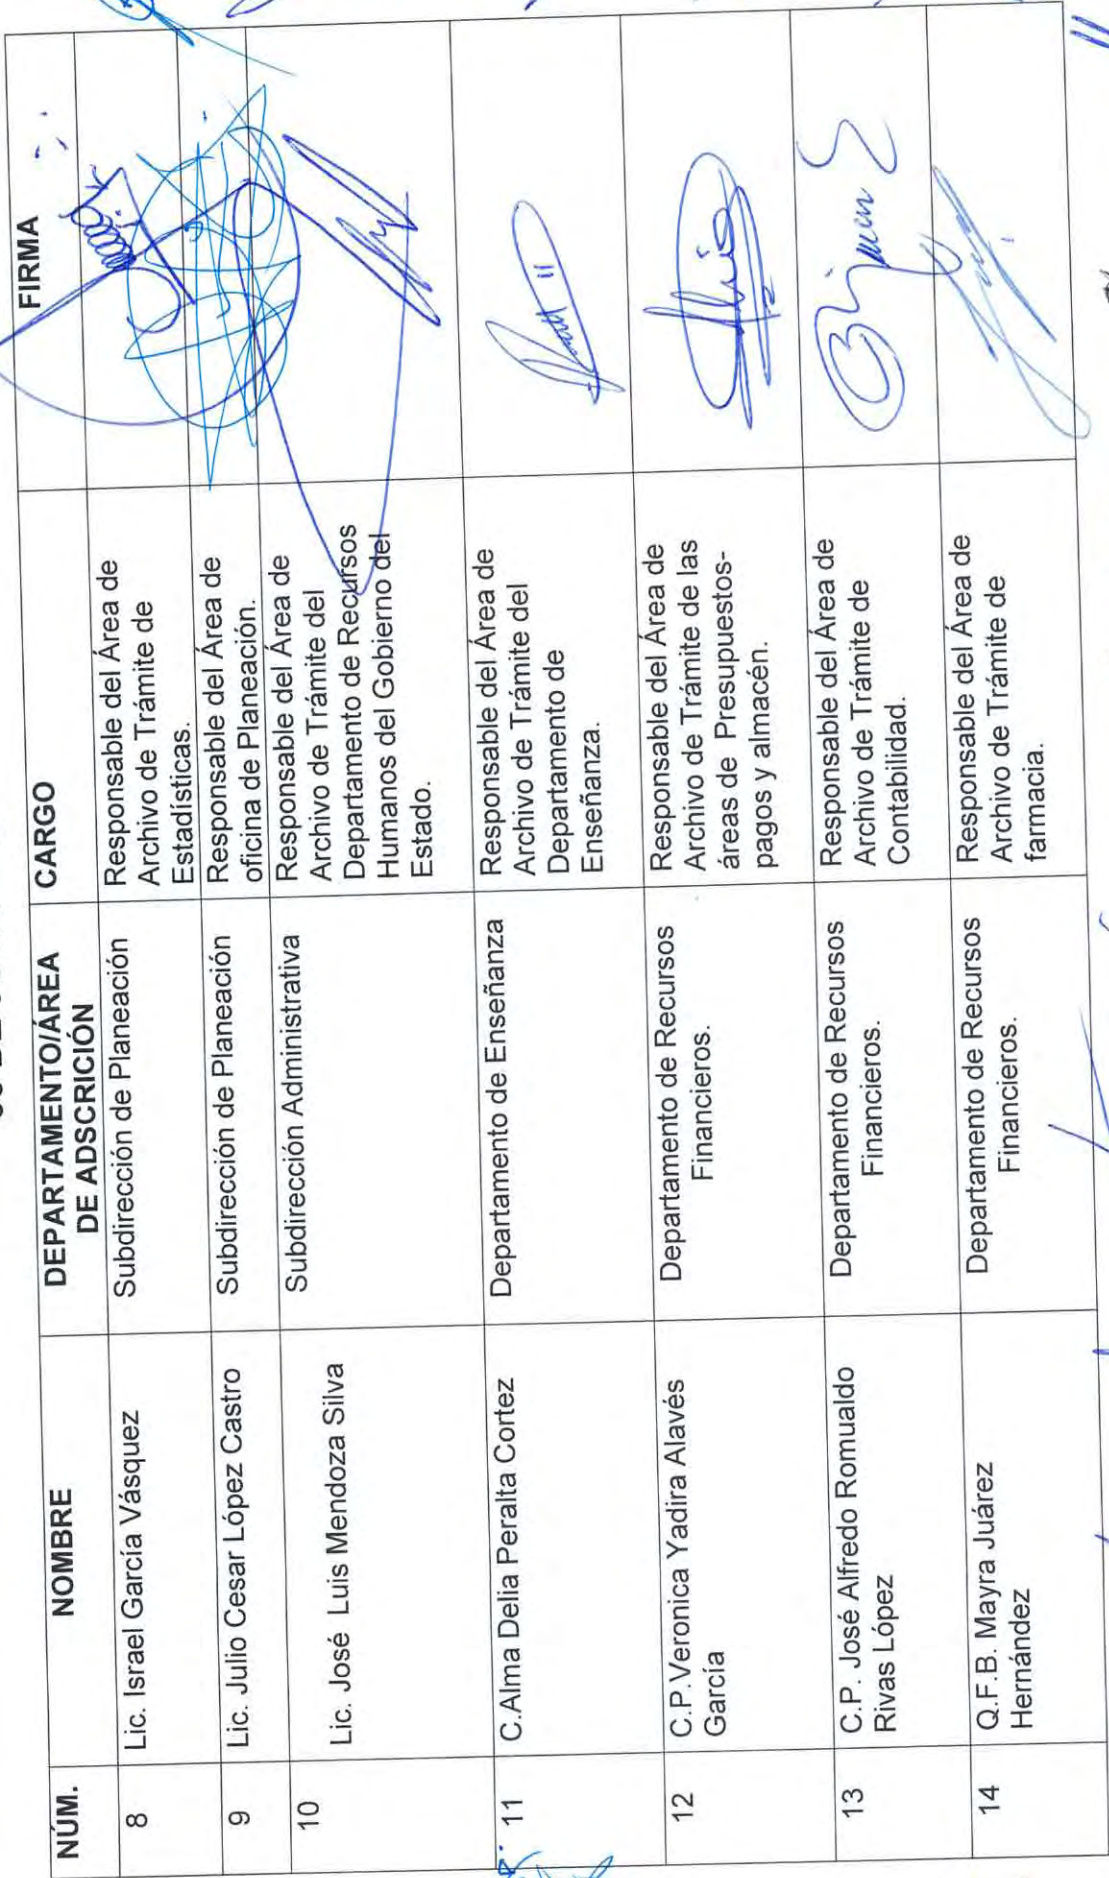 NÚM.
NOMBRE
DEPARTAMENTO/ÁREA
DE ADSCRICIÓN
CARGO
FIRMA
8
Lic. Israel García Vásquez
Subdirección de Planeación
Responsable del Área de
Archivo de Trámite de
Estadísticas.
9
Lic. Julio Cesar López Castro
Subdirección de Planeación
Responsable del Área de
oficina de Planeación.
10
Lic. José Luis Mendoza Silva
Subdirección Administrativa
Responsable del Área de
Archivo de Trámite del
Departamento de Recursos
Humanos del Gobierno del
Estado.
11
C.Alma Delia Peralta Cortez
Departamento de Enseñanza
Responsable del Área de
Archivo de Trámite del
Departamento de
Enseñanza.
12
C.P.Veronica Yadira Alavés
García
Departamento de Recursos
Financieros.
Responsable del Área de
Archivo de Trámite de las
áreas de Presupuestos-
pagos y almacén.
13
C.P. José Alfredo Romualdo
Rivas López
Departamento de Recursos
Financieros.
Responsable del Área de
Archivo de Trámite de
Contabilidad.
14
Q.F.B. Mayra Juárez
Hernández
Departamento de Recursos
Financieros.
Responsable del Área de
Archivo de Trámite de
farmacia.